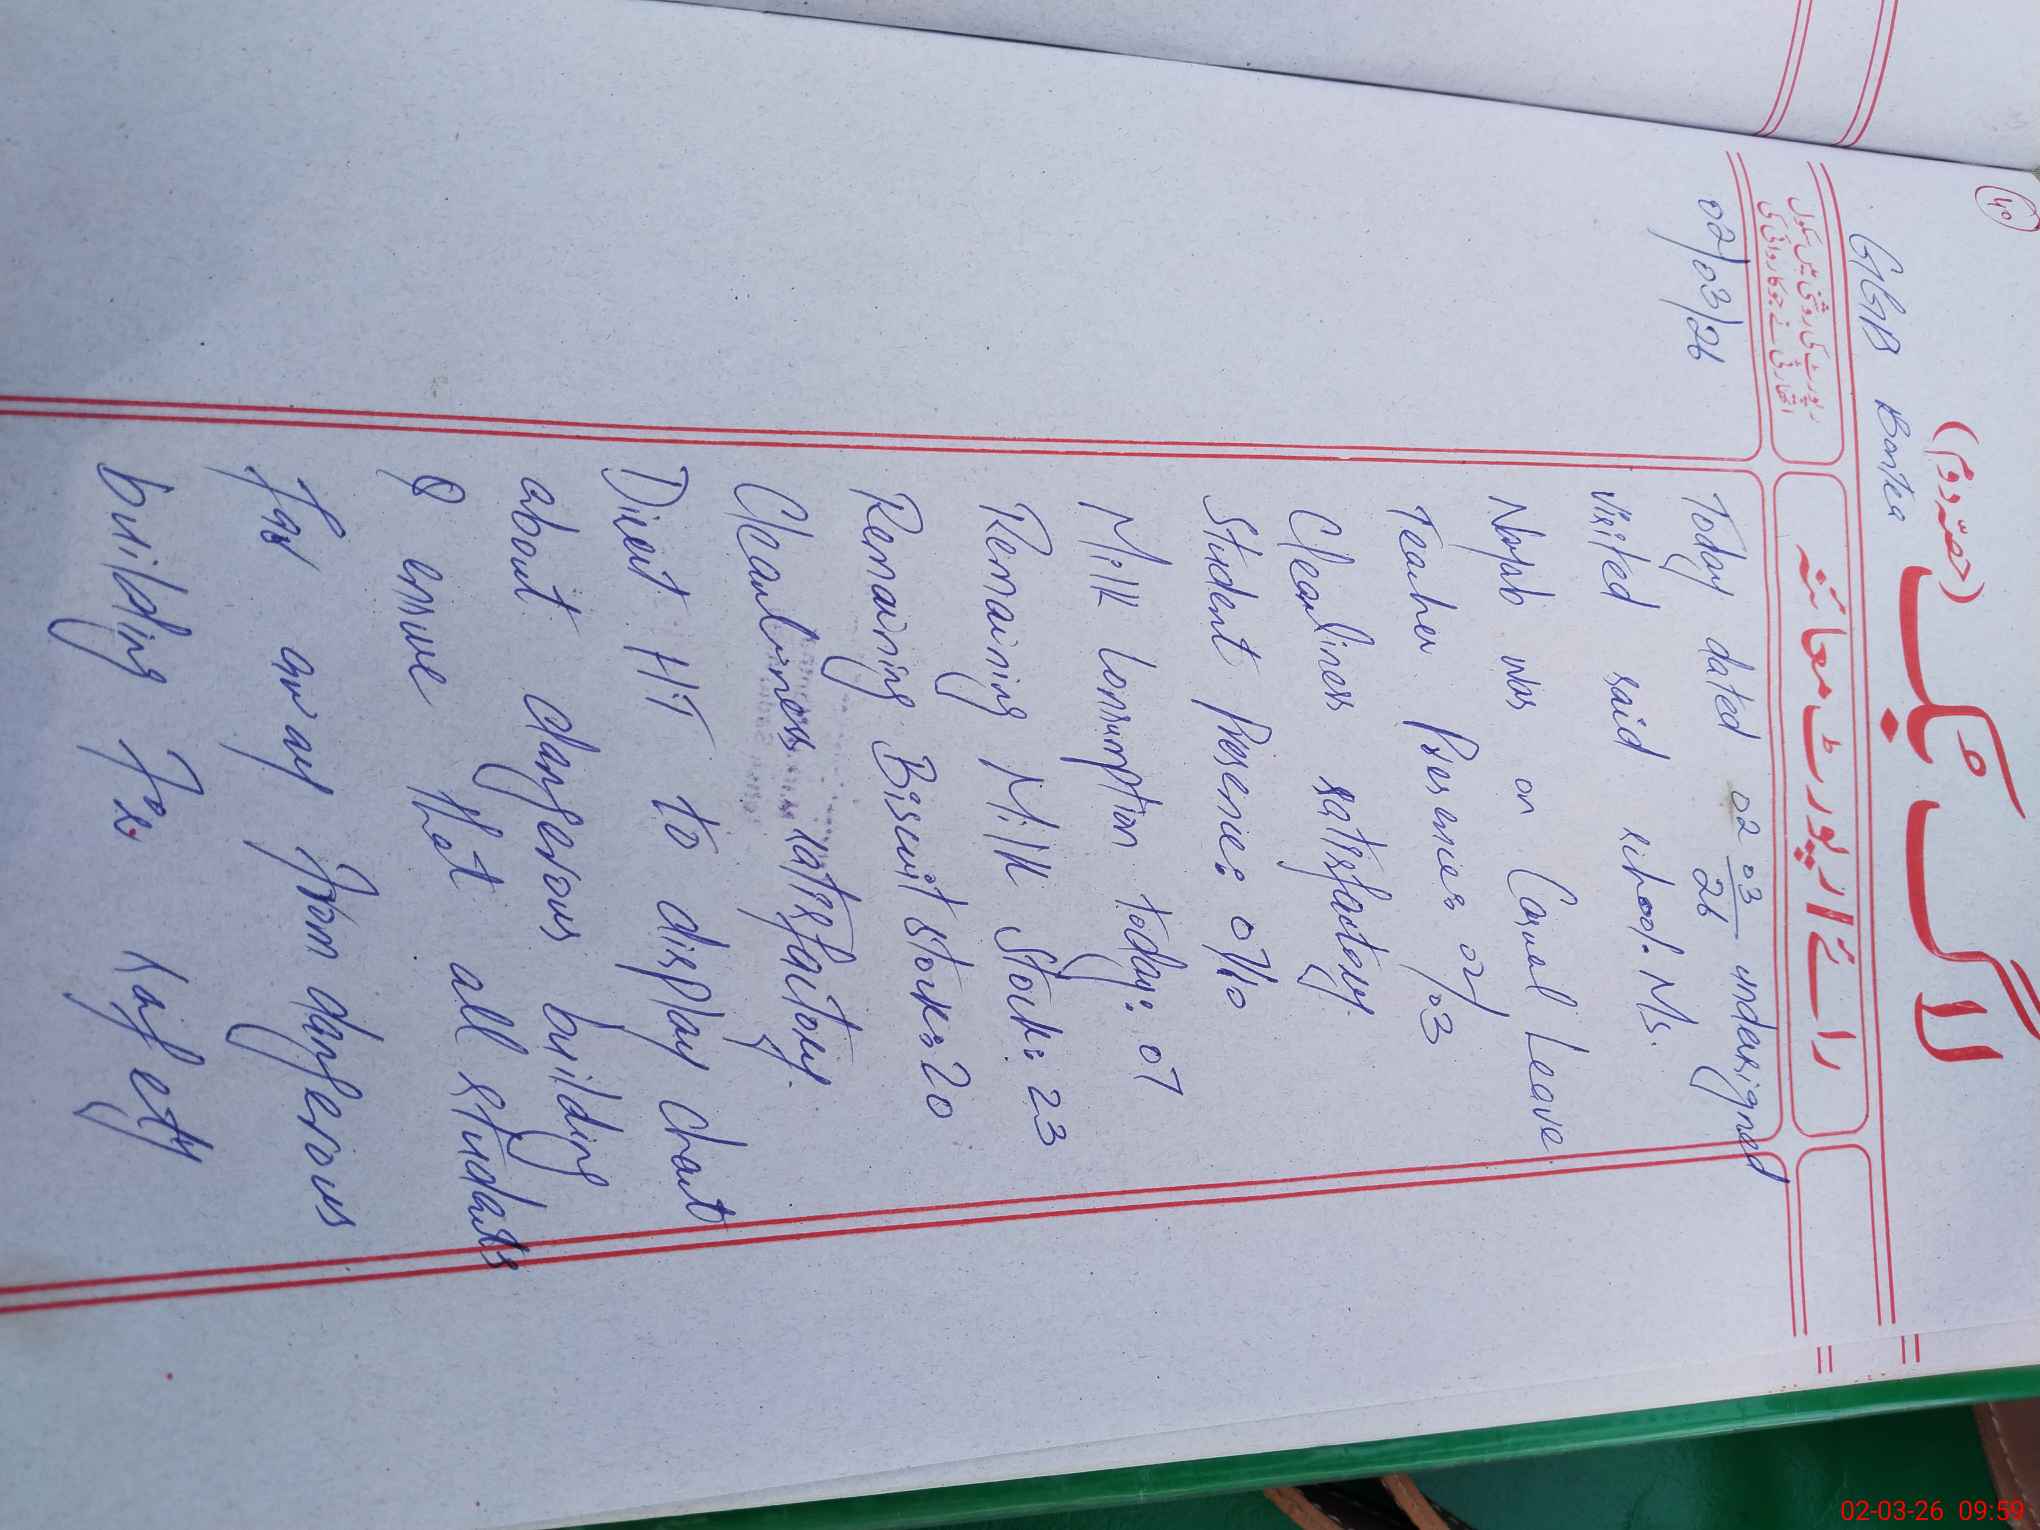 ۴۰
(حصّہ دوم)
لاگ بک
GGB Bontea
رپورٹ کی روشنی میں سکول
اتھارٹی نے جو کاروائی کی
رائے / رپورٹ معائنہ
02/03/26
Today dated 02 03/26 undersigned
visited said school. Ms.
was on Casual Leave
Teacher Presence: 02/03
Cleanliness satisfactory.
Student Presence: 07/10
Milk Consumption today: 07
Remaining Milk Stock: 23
Remaining Biscuit Stock: 20
Cleanliness satisfactory.
Direct HT to display chart
about dangerous building
& ensure that all students
Far away from dangerous
building For safety
02-03-26 09:59